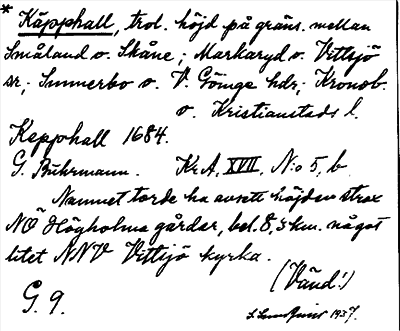 * Käpphall, trol. höjd på gräns. mellan
Småland o. Skåne; Markaryd o. Vittsjö
sr; Sunnerbo o. V. Göinge hdr; Kronob.
o. Kristianstads l.
Kepphall 1684.
G. Buhrmann. Kr.A, XVII, N:o 5, b.
Namnet torde ha avsett höjden strax
NÖ Högholma gårdar, bel. 8,5 km. något
litet NNV Vittsjö kyrka.
(Vänd!)
G. 9.
1937.